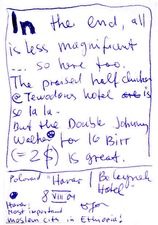 In the end, all
is less magnificent
... so here too.
The praised half chicken
@ Tewodros hotel is
so la la.
But the Double Johnny
Walker for 16 Birr
(= 2 $) is great.
Polaroid Harar / Belayneh
Hotel
8 VIII 04
Harar:
Most important
moslem city in Ethiopia!